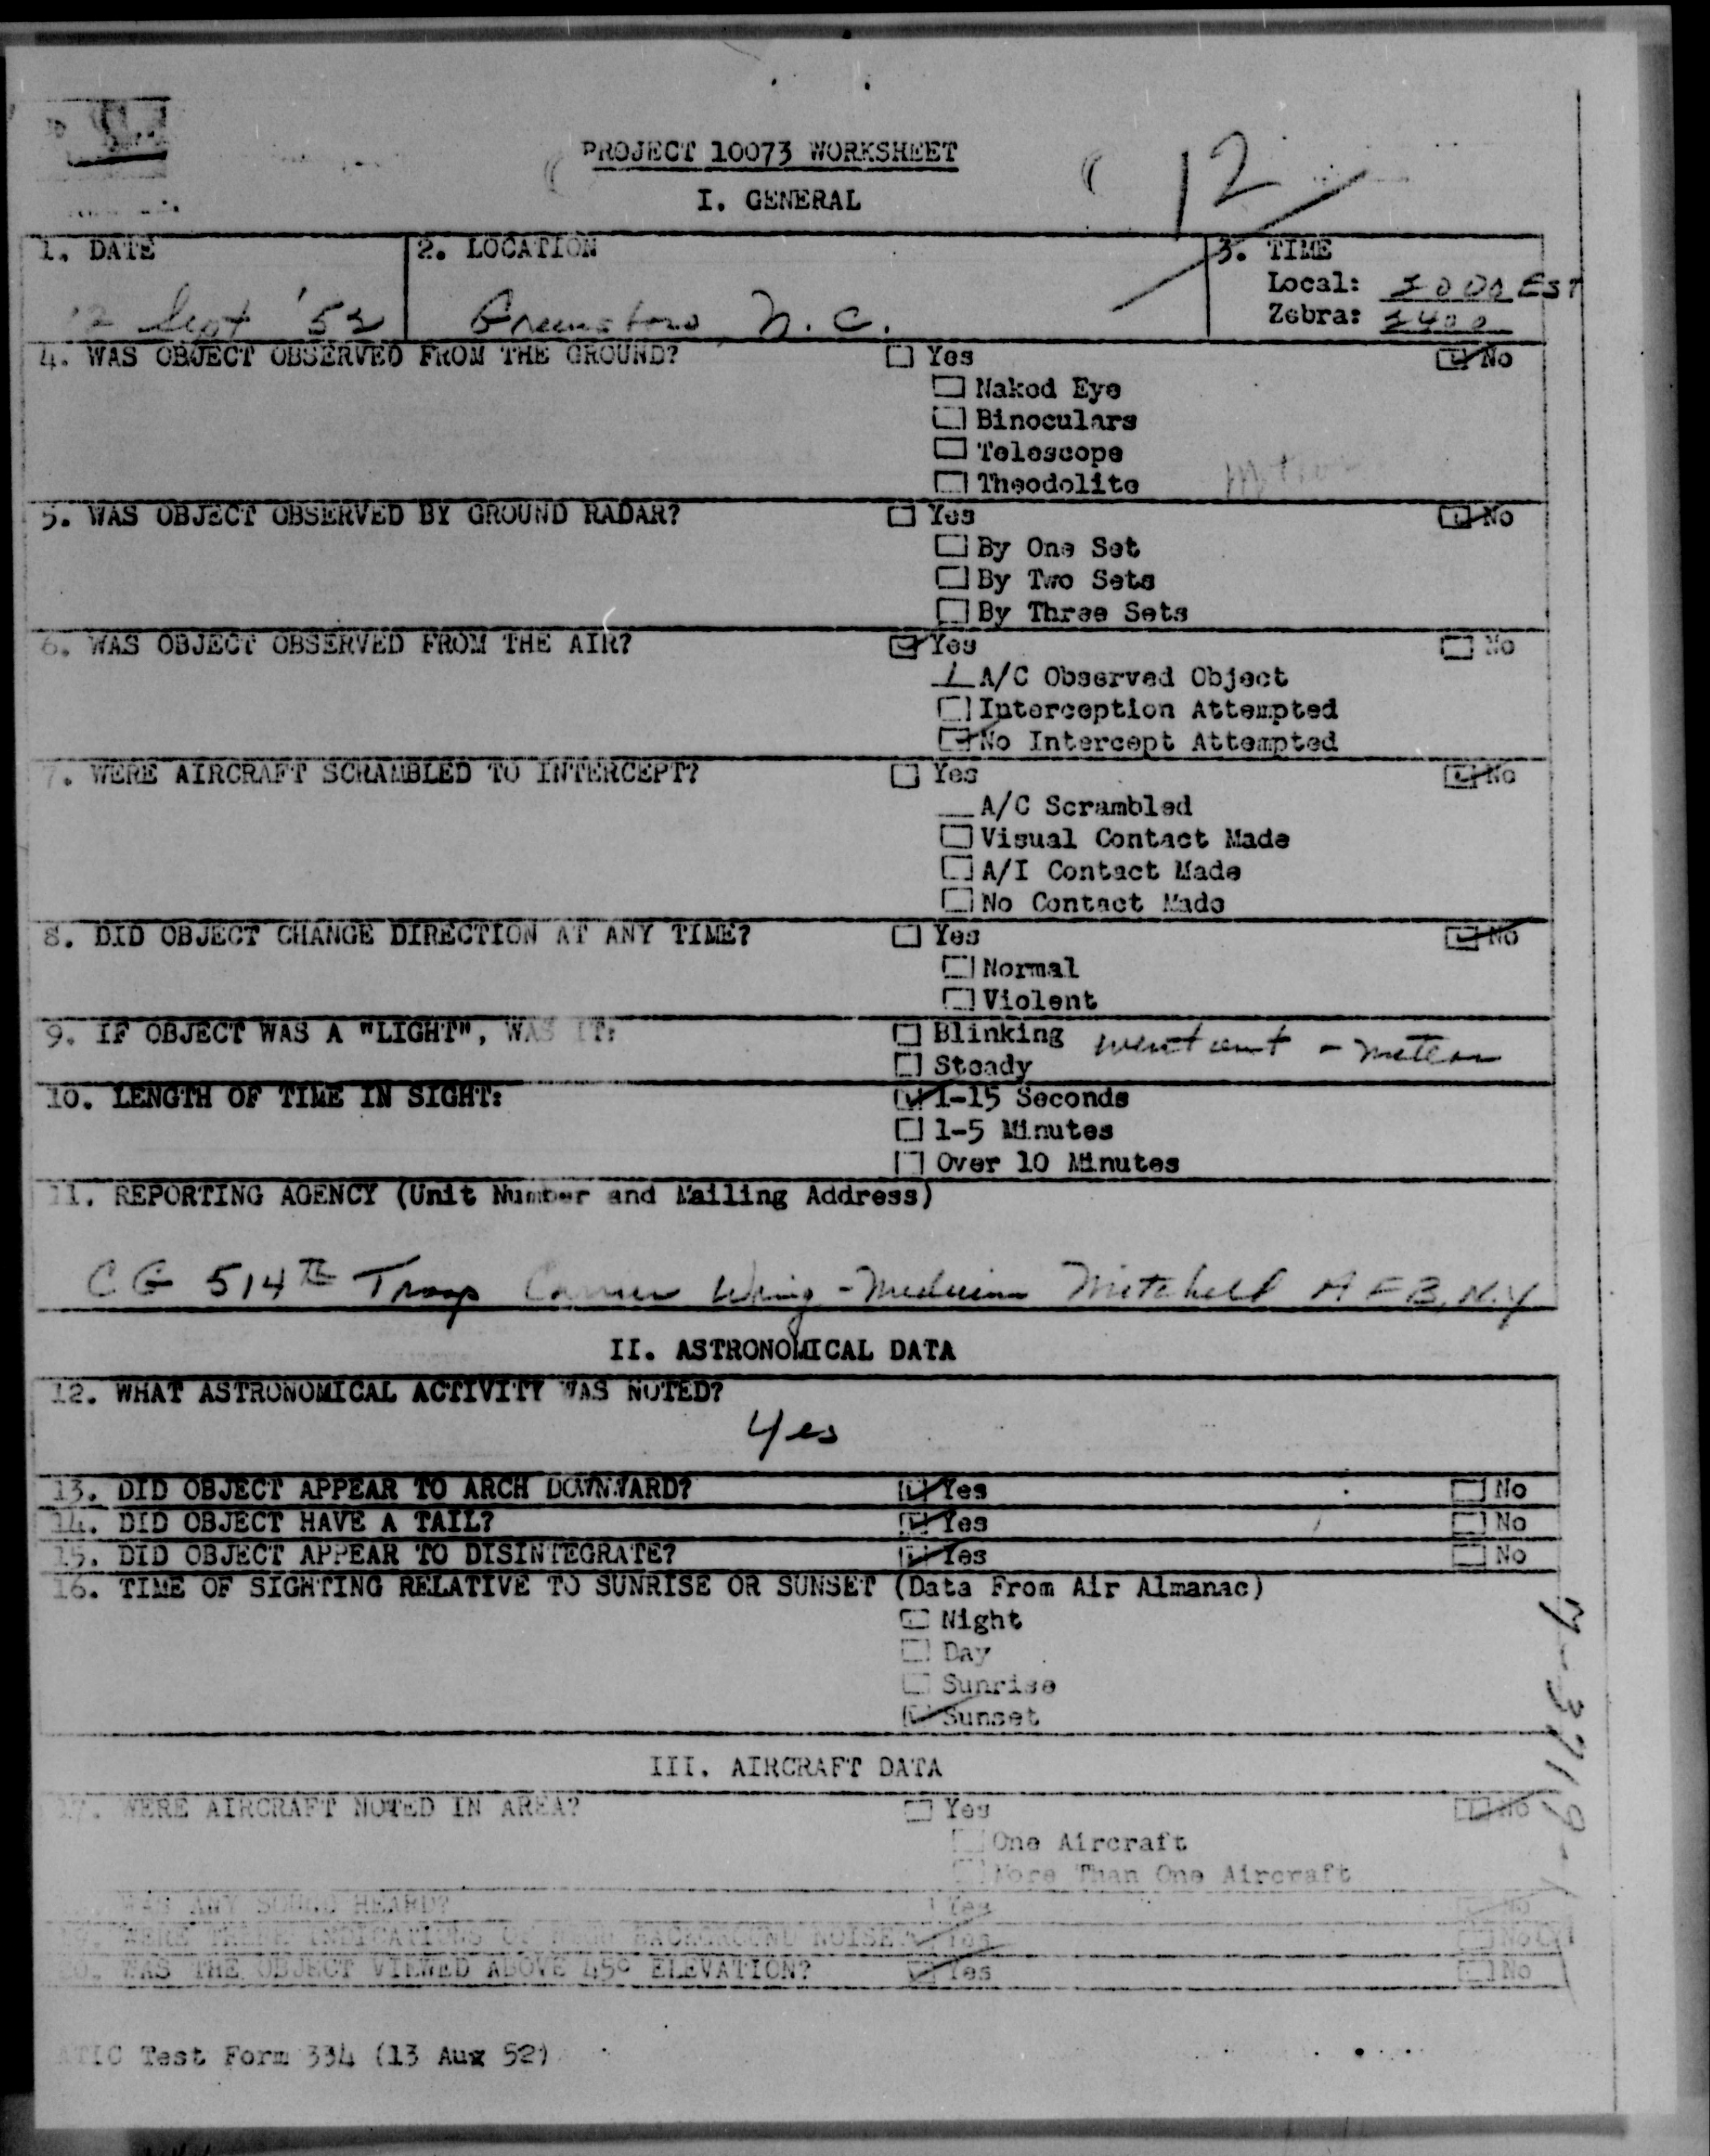 PROJECT 10073 WORKSHEET
12
I. GENERAL
1. DATE
2. LOCATION
3. TIME
Local: EST
Zebra:
12 Sept '52
N.C.
4. WAS OBJECT OBSERVED FROM THE GROUND?
☐ Yes
☑ No
☐ Naked Eye
☐ Binoculars
☐ Telescope
☐ Theodolite
5. WAS OBJECT OBSERVED BY GROUND RADAR?
☐ Yes
☑ No
☐ By One Set
☐ By Two Sets
☐ By Three Sets
6. WAS OBJECT OBSERVED FROM THE AIR?
☑ Yes
☐ No
1 A/C Observed Object
☐ Interception Attempted
☑ No Intercept Attempted
7. WERE AIRCRAFT SCRAMBLED TO INTERCEPT?
☐ Yes
☑ No
__ A/C Scrambled
☐ Visual Contact Made
☐ A/I Contact Made
☐ No Contact Made
8. DID OBJECT CHANGE DIRECTION AT ANY TIME?
☐ Yes
☑ No
☐ Normal
☐ Violent
9. IF OBJECT WAS A "LIGHT", WAS IT:
☐ Blinking
went out - meteor
☐ Steady
10. LENGTH OF TIME IN SIGHT:
☑ 1-15 Seconds
☐ 1-5 Minutes
☐ Over 10 Minutes
11. REPORTING AGENCY (Unit Number and Mailing Address)
CG 514th Troop Carrier Wing - Medium Mitchell AFB, N.Y
II. ASTRONOMICAL DATA
12. WHAT ASTRONOMICAL ACTIVITY WAS NOTED?
Yes
13. DID OBJECT APPEAR TO ARCH DOWNWARD?
☑ Yes
☐ No
14. DID OBJECT HAVE A TAIL?
☑ Yes
☐ No
15. DID OBJECT APPEAR TO DISINTEGRATE?
☑ Yes
☐ No
16. TIME OF SIGHTING RELATIVE TO SUNRISE OR SUNSET (Data From Air Almanac)
☐ Night
☐ Day
☐ Sunrise
☑ Sunset
III. AIRCRAFT DATA
17. WERE AIRCRAFT NOTED IN AREA?
☐ Yes
☑ No
☐ One Aircraft
☐ More Than One Aircraft
WAS ANY SOUND HEARD?
☐ Yes
☑ No
19. WERE THERE INDICATIONS OF HIGH BACKGROUND NOISE
☑ Yes
☐ No
20. WAS THE OBJECT VIEWED ABOVE 45° ELEVATION?
☑ Yes
☐ No
ATIC Test Form 334 (13 Aug 52)